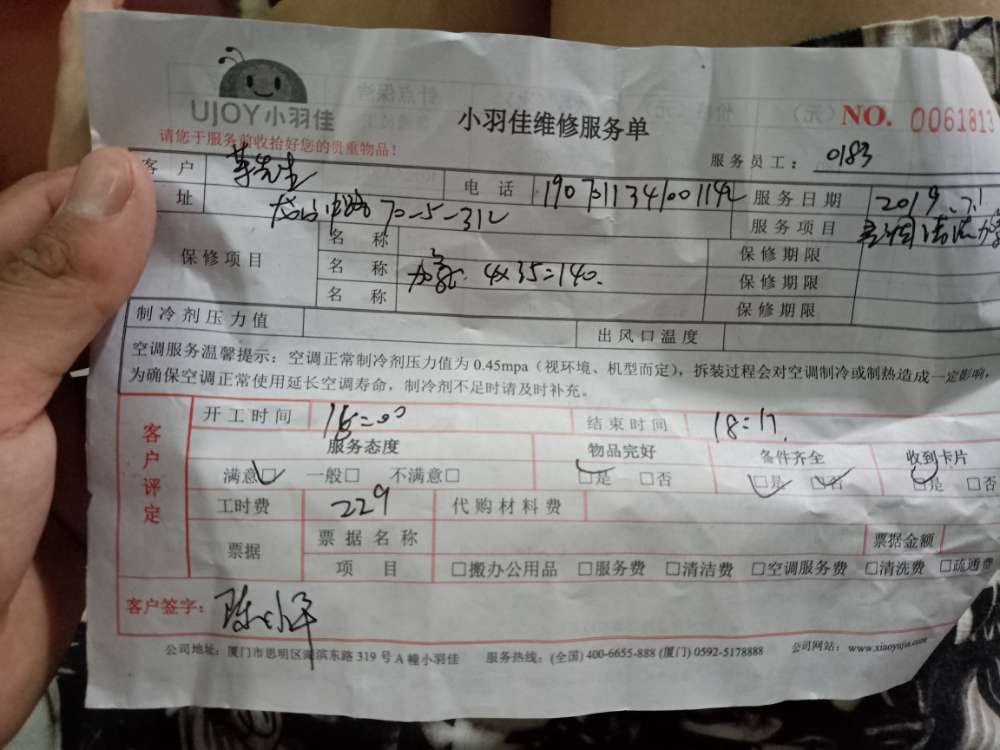 UJOY小羽佳
小羽佳维修服务单
NO. 0061813
请您于服务前收拾好您的贵重物品！
服务员工： 0183
客户 先生 电话 服务日期 2019.7.1
址 70-5-312 服务项目 空调清洗加氨
保修项目 名称 保修期限
名称 4x35=140. 保修期限
名称 保修期限
制冷剂压力值 出风口温度
空调服务温馨提示：空调正常制冷剂压力值为 0.45mpa（视环境、机型而定），拆装过程会对空调制冷或制热造成一定影响，
为确保空调正常使用延长空调寿命，制冷剂不足时请及时补充。
客户评定
开工时间 结束时间 18:17
服务态度 物品完好 备件齐全 收到卡片
满意□ 一般□ 不满意□ □是 □否 □是 □否 □是 □否
工时费 229 代购材料费
票据 票据名称 票据金额
项目 □搬办公用品 □服务费 □清洁费 □空调服务费 □清洗费 □疏通费
客户签字：
公司地址：厦门市思明区湖滨东路 319 号 A 幢小羽佳 服务热线：(全国) 400-6655-888 (厦门) 0592-5178888 公司网站：www.xiaoyujia.com